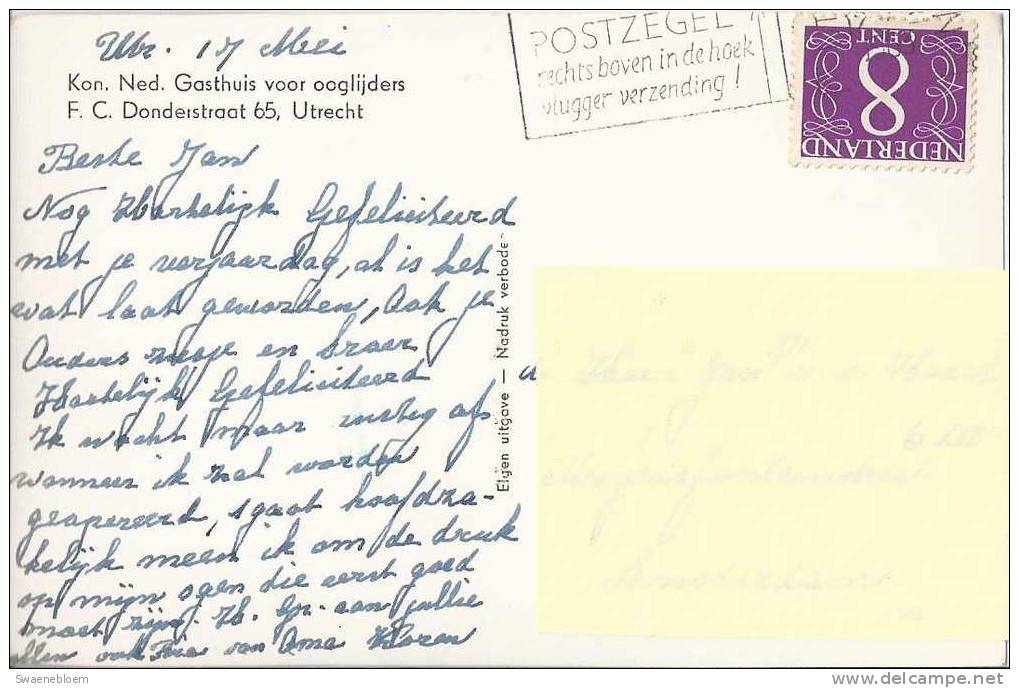 Utr. 17 Mei
Kon. Ned. Gasthuis voor ooglijders
F. C. Donderstraat 65, Utrecht
POSTZEGEL
rechts boven in de hoek
vlugger verzending!
CENT
8
NEDERLAND
Beste Jan
Nog Hartelijk Gefeliciteerd
met je verjaardag, al is het
wat laat geworden, Ook je
Ouders zusje en broer
Hartelijk Gefeliciteerd
Ik wacht maar rustig af
wanneer ik zal worden
geopereerd, 't gaat hoofdza-
kelijk meen ik om de druk
op mijn ogen die eerst goed
moet zijn. H. Gr. aan jullie
allen ook van Oma
Elgéén uitgave — Nadruk verbode
6 III
Swaenebloem
www.delcampe.net